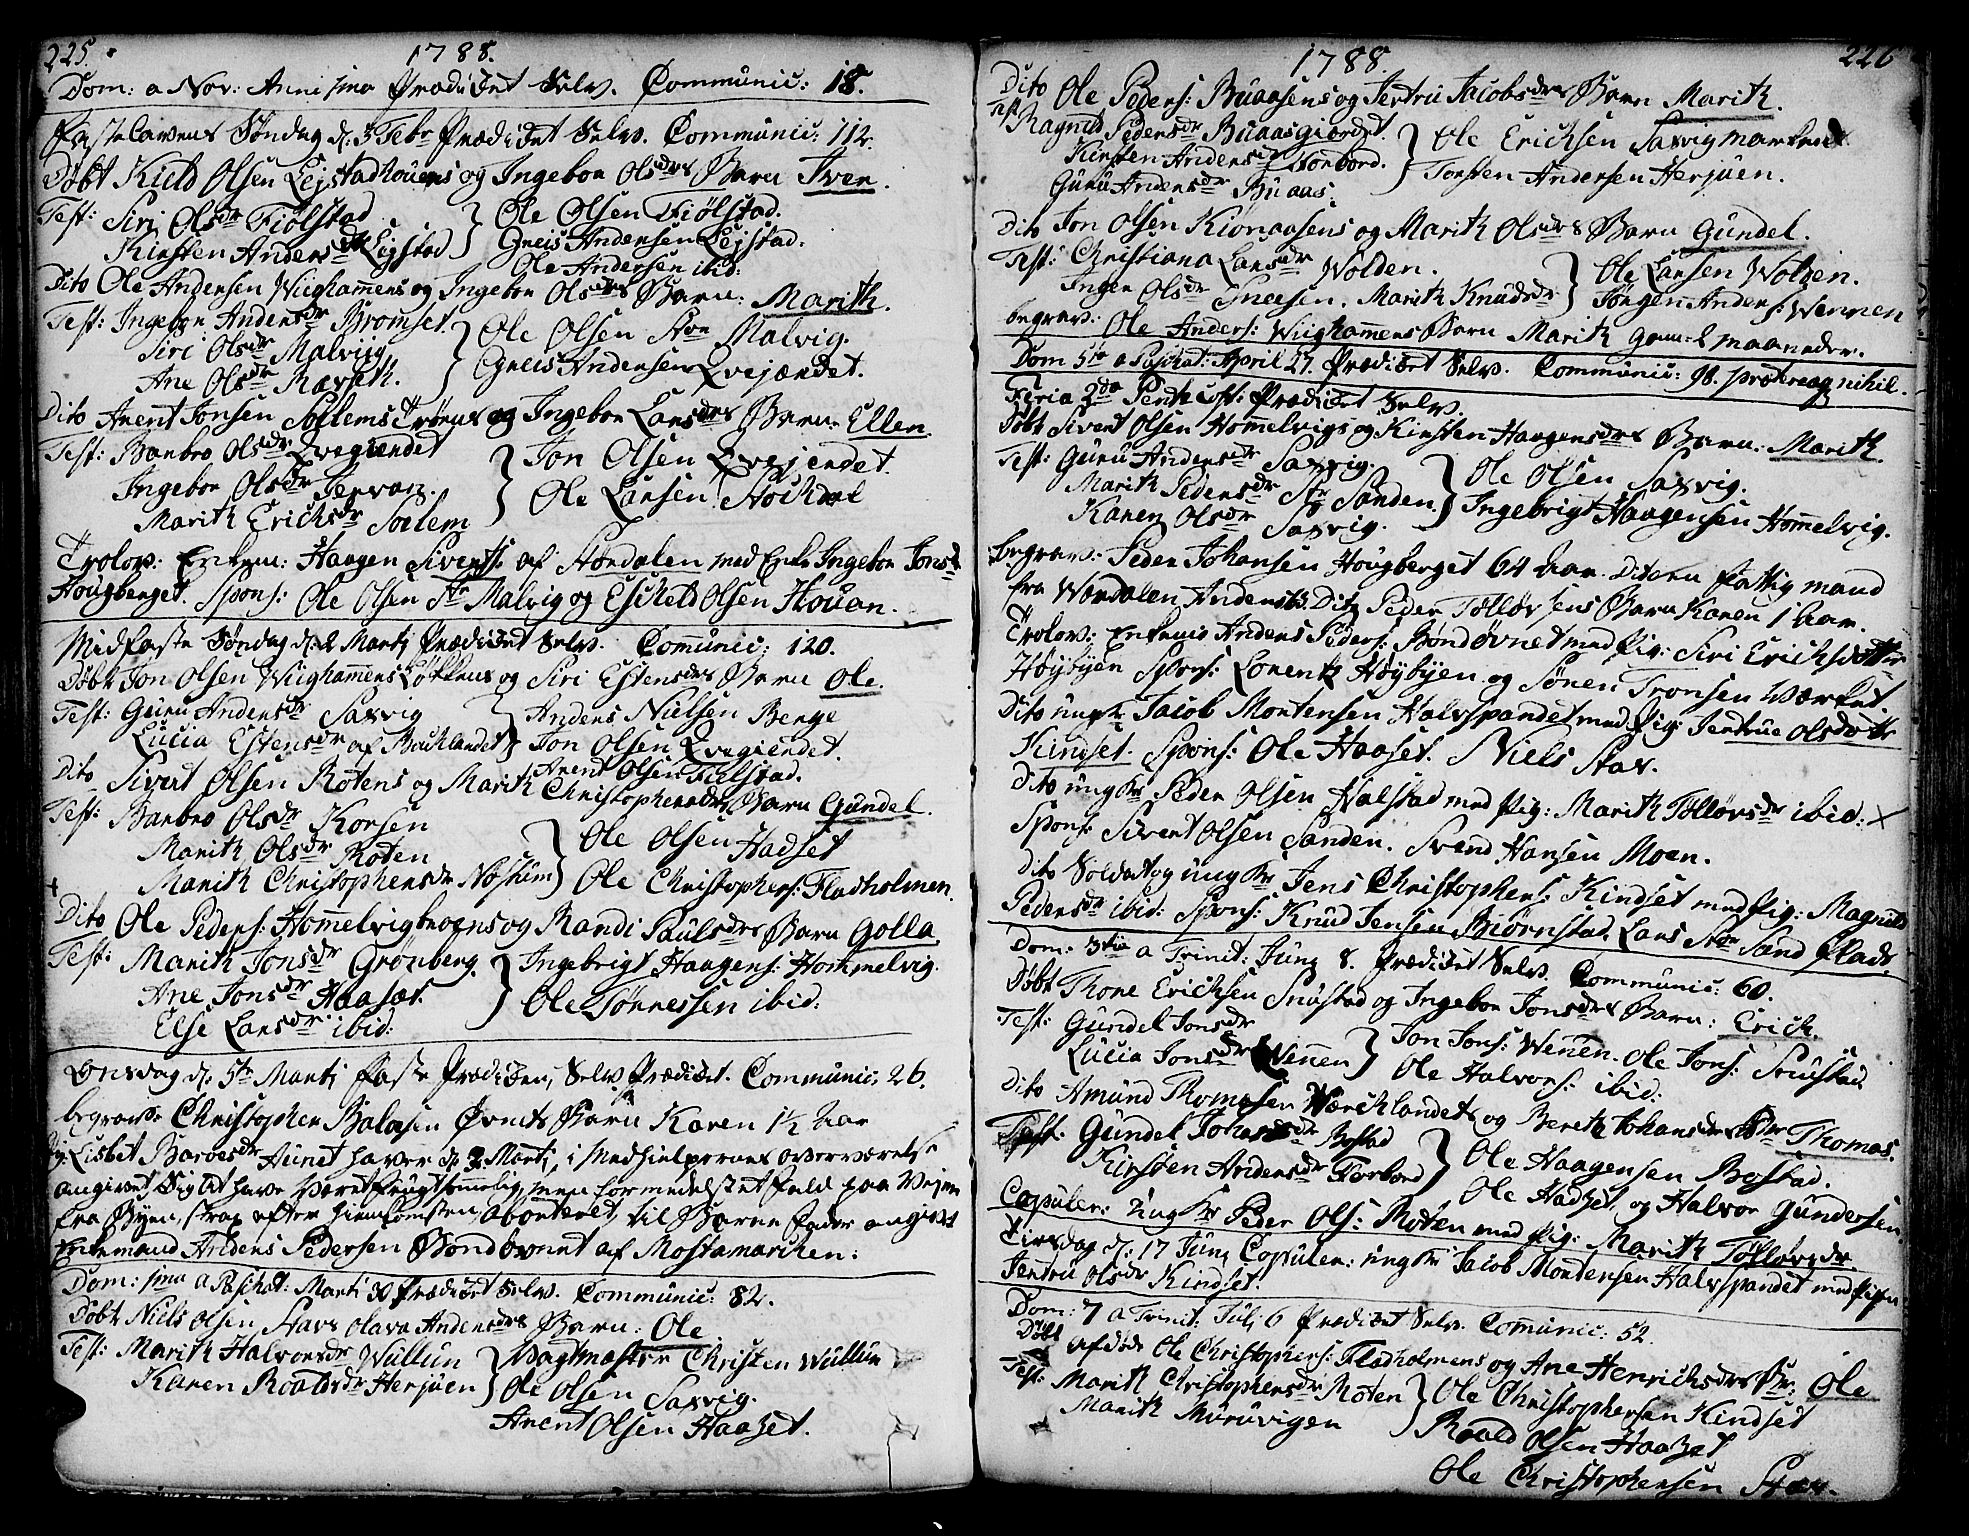 225.
1788.
Dom: a Nov: Anni 1ma Prædicket Selv. Communic: 18.
Fastelavens Søndag d. 3 Febr Prædicket Selv. Communic: 112.
Døbt Kield Olsen Lejstadhouens og Ingebor Olsdrs Barn Iver.
Test: Siri Olsdr Fiølstad } Ole Olsen Fiølstad.
Kirsten Andersdr Lejstad } Gneis Andersen Lejstad.
Ole Andersen ibid:
Dito Ole Andersen Wiighamens og Ingebor Olsdrs Barn: Marith.
Test: Ingebor Andersdr Bromset. } Ole Olsen Stor Malvig.
Siri Olsdr Malviig } Gneis Andersen Qvejerdet.
Ane Olsdr Ræset.
Dito Arent Jonsen Solemstrøens og Ingebor Larsdrs Barn: Ellen.
Test: Barbro Olsdr Qvegierdet } Jon Olsen Qvejerdet.
Ingebor Olsdr Jervan. } Ole Larsen Stockdal
Marith Ericksdr Solem
Trolov: Enkem: Haagen Sivertz: af Stordalen med Enke Ingebor Jonsd
Hougberget. Spons: Ole Olsen Str Malvig og Eskeld Olsen Houan.
Midfaste Søndag d. 2 Marti Prædicket Selv. Communic: 120.
Døbt Jon Olsen Wiighamens Løkkens og Siri Estensdrs Barn Ole.
Test: Guru Andersdr Saxvig } Anders Nielsen Berge
Lucia Estensdr af Bruklandet } Jon Olsen Qvegierdet.
Arent Olsen Fielstad.
Dito Sivert Olsen Rotens og Marith Christophersdrs Barn Gundel.
Test: Barbro Olsdr Korsen } Ole Olsen Hadset
Marith Olsdr Roten
Marith Christophersdr Nostum } Ole Christophers: Fladholmen.
Dito Ole Peders: Hommelvigtroens og Randi Paulsdrs Barn Golla
Test: Marith Jonsdr Grønberg. } Ingebrigt Haagens: Hommelvig.
Ane Jonsdr Haasæt } Ole Tønnessen ibid:
Else Larsdr ibid:
Onsdag d. 5te Marti Faste Prædiken, Selv Prædicket. Communic, 26.
begravet Christopher Balasen Øvrets Barn Karen 1½ Aar
Pig: Lisbet Barbesdr Aunet haver d. 2 Marti, i Medhielpernes overværelse
angivet Sig at have Været frugtsommelig, men formedelst et fald paa Vejen
fra Byen, strax efter Hiemkomsten, aborteret, til Barne fader angivet
Enkemand Anders Pedersen Bondøvnet af Mostamarcken:
Dom: 1ma a Paschat: Marti 30 Prædicket Selv. Communic: 82.
Døbt Niels Olsen Stavs Olava Andersdrs Barn: Ole
Test: Marith Halvorsdr Wullun } Vagtmæster Christen Wullun
Karen Roaldsdr Herjuen } Ole Olsen Saxvig.
Arent Olsen Haaset.
226
1788
Dito Ole Peders: Buaasens og Jertru Jacobsdrs Barn Marith.
Test Ragnild Pedersdr Buaasgierdet. } Ole Ericksen Saxvigmarken.
Kirsten Andersdr Torbord. } Torsten Andersen Herjuen.
Guru Andersdr Buaas.
Dito Jon Olsen Kiønaasens og Marith Olsdrs Barn Gundel.
Test: Christiana Larsdr Wolden. } Ole Larsen Wolden.
Inger Olsdr Sneesen. Marith Knudsdr } Jørgen Anders: Wennen
begrav: Ole Anders: Wiighamens Barn Marith gam: 2 maaneder.
Dom 5te a Paschat: April 27. Prædicket Selv. Communic: 98. prætereaq nihil.
Feria 2da Pentecost: Prædicket Selv.
Døbt Sivert Olsen Homelvigs og Kirsten Haagensdrs Barn: Marith.
Test: Guru Andersdr Saxvig. } Ole Olsen Saxvig.
Marith Pedersdr Str Sanden } Ingebrigt Haagensen Homelvig.
Karen Olsdr Saxvig.
begrav: Peder Johansen Hougberget 64 Aar. Dito en fattig mand
fra Værdalen, Anders Dito Peder Tølløvsens Barn Karen 1 Aar.
Trolov: Enkem: Anders Peders: Bondøvnet med Pig: Siri Ericksdotter
Høybyen Spons: Lorentz Høybyen og Søren Tronsen Værket.
Dito ungkr Jacob Mortensen Halvspandet med Pig: Jertrue Olsdottr
Kindset. Spons: Ole Haaset. Niels Stav.
Dito ungkr Peder Olsen Halstad med Pig: Marith Tølløvsdr ibid: X
Spons: Sivert Olsen Sanden. Svend Hansen Moen.
Dito Soldat og ungkr Jens Christophers: Kindset med Pig: Magnild
Pedersdr ibid: Spons: Knud Jensen Biørnstad. Lars Str Sand Flade.
Dom: 3tia a Trinit: Juny 8. Prædicket Selv. Communic: 60.
Døbt Thore Ericksen Snustad og Ingebor Jonsdrs Barn: Erick.
Test: Gundel Jonsdr } Jon Jons: Wenen. Ole Jons: Snustad
Lucia Jonsdr Wennen } Ole Halvors: ibid:
Dito Amund Thomesen Værcklandets og Bereth Johansdrs Br Thomas.
Test: Gundel Johansdr Bostad } Ole Haagensen Bostad.
Kirsten Andersdr Forbord } Ole Hadset og Halvor Gundersen
Copuler: Ungkr Peder Ols: Roten med Pig: Marith Tølløvsdr.
Tirsdag d: 17 Juny Copuler: ungkr Jacob Mortensen Halvspandet med Pigen
Jertru Olsdr Kindset.
Dom: 7 a Trinit: July 6 Prædicket Selv. Comunic: 52.
Døbt afdøde Ole Christophers: Fladholmens og Ane Henricksdrs Br: Ole
Test: Marith Christophersdr Roten } Ole Christophersen Kindset
Marith Muruvigen } Roald Olsen Haaset
Ole Christophersen Stav.